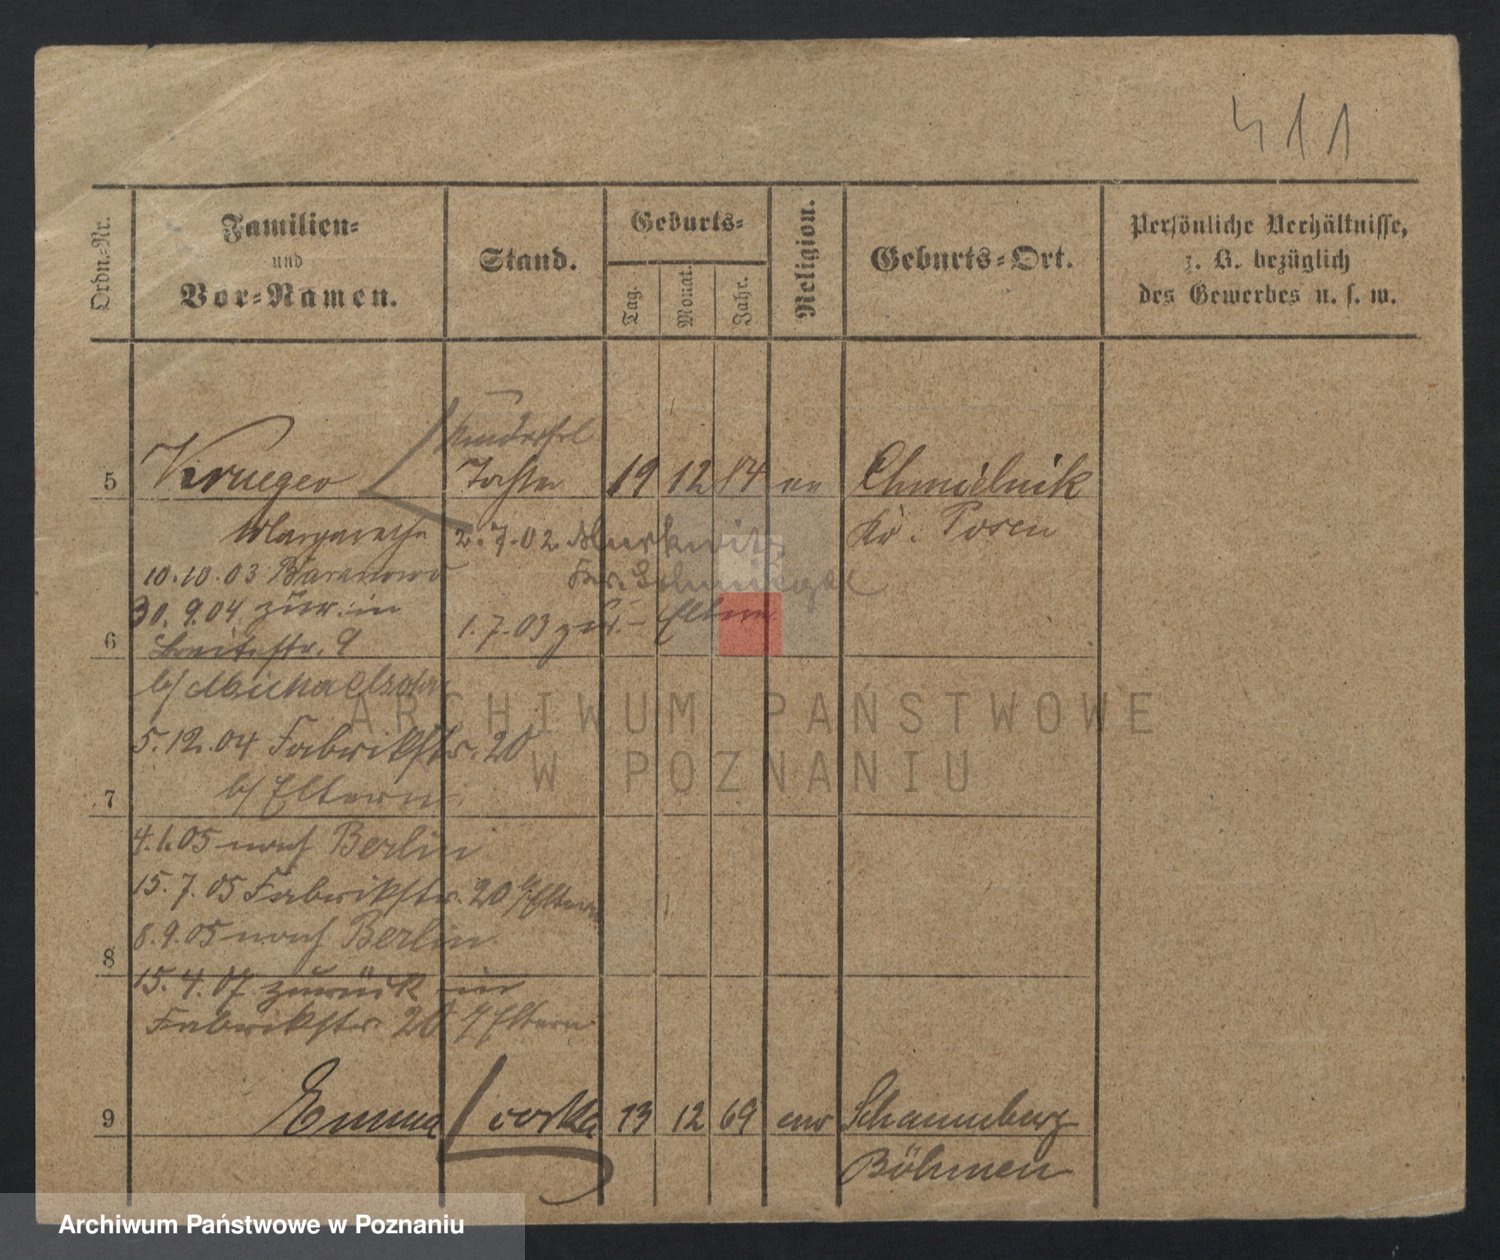 411
Ordn.-Nr.
Familien-
und
Vor-Namen.
Stand.
Geburts-
Tag.
Monat.
Jahr.
Religion.
Geburts-Ort.
Persönliche Verhältnisse,
z. B. bezüglich
des Gewerbes u. s. w.
5 Krueger 19 12 84 Chmielnik
Margarethe 2.7.02 Kr. Posen
10.10.03
30.9.04 zur. in
6 Breitestr. 9 1.7.03 Eltern
b/
5.12.04 Fabrikstr. 20
7 b/ Eltern
4.1.05 nach Berlin
15.7.05 Fabrikstr. 20 b/ Eltern
8.9.05 nach Berlin
8
15.4.07 zurück in
Fabrikstr. 20 Eltern
9 Emma 13 12 69
Böhmen
ARCHIWUM PAŃSTWOWE
W POZNANIU
Archiwum Państwowe w Poznaniu